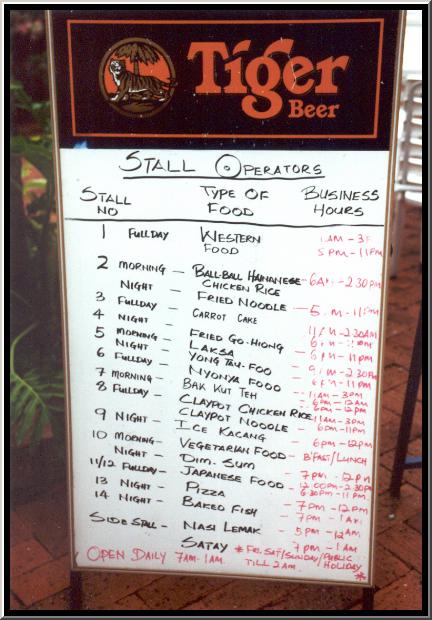 Tiger
Beer
STALL OPERATORS
STALL NO TYPE OF FOOD BUSINESS HOURS
1 FULLDAY WESTERN FOOD 5PM - 11PM
2 MORNING - BALL-BALL HAINANESE CHICKEN RICE - 6AM - 2.30PM
NIGHT - FRIED NOODLE
3 FULLDAY - CARROT CAKE
4 NIGHT - FRIED GO-HIONG
5 MORNING - LAKSA
NIGHT - YONG TAU-FOO
6 FULLDAY - NYONYA FOOD
7 MORNING - BAK KUT TEH - 11AM - 3PM
8 FULLDAY - CLAYPOT CHICKEN RICE
CLAYPOT NOODLE 11AM - 3PM
6PM - 11PM
9 NIGHT - ICE KACANG 6PM - 12PM
10 MORNING - VEGETARIAN FOOD - B'FAST/LUNCH
NIGHT - DIM. SUM - 7PM - 12PM
11/12 FULLDAY - JAPANESE FOOD - 12.00PM - 2.30PM
6.30PM - 11PM
13 NIGHT - PIZZA - 7PM - 12PM
14 NIGHT - BAKED FISH - 7PM - 1AM
SIDE STALL - NASI LEMAK - 5PM - 12AM
SATAY 7PM - 1AM
OPEN DAILY 7AM-1AM * FRI. SAT/SUNDAY/PUBLIC HOLIDAY *
TILL 2AM